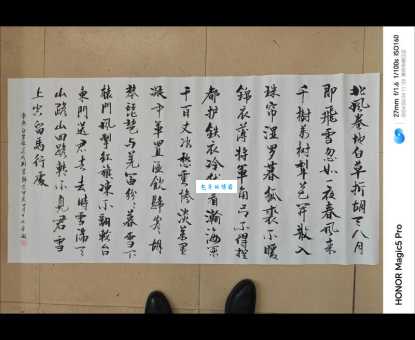 北風卷地白草折胡天八月
即飛雪忽如一夜春風来
千樹萬樹梨花開散入
珠帘湿罗幕狐裘不暖
錦衾薄將軍角弓不得控
都护铁衣冷难着瀚海阑
干百丈冰愁雲惨淡萬里
凝中軍置酒飲歸客胡
琴琵琶与羌笛紛紛暮雪下
辕門風掣红旗凍不翻轮台
東門送君去去時雪满天
山路山回路轉不見君雪
上空留馬行處
HONOR Magic5 Pro
27mm f/1.6 1/100s ISO160